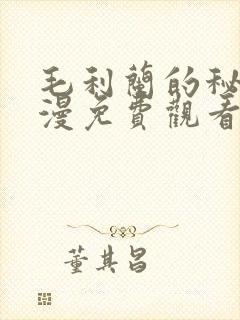 毛利蘭的秘
漫免費觀看
董其昌